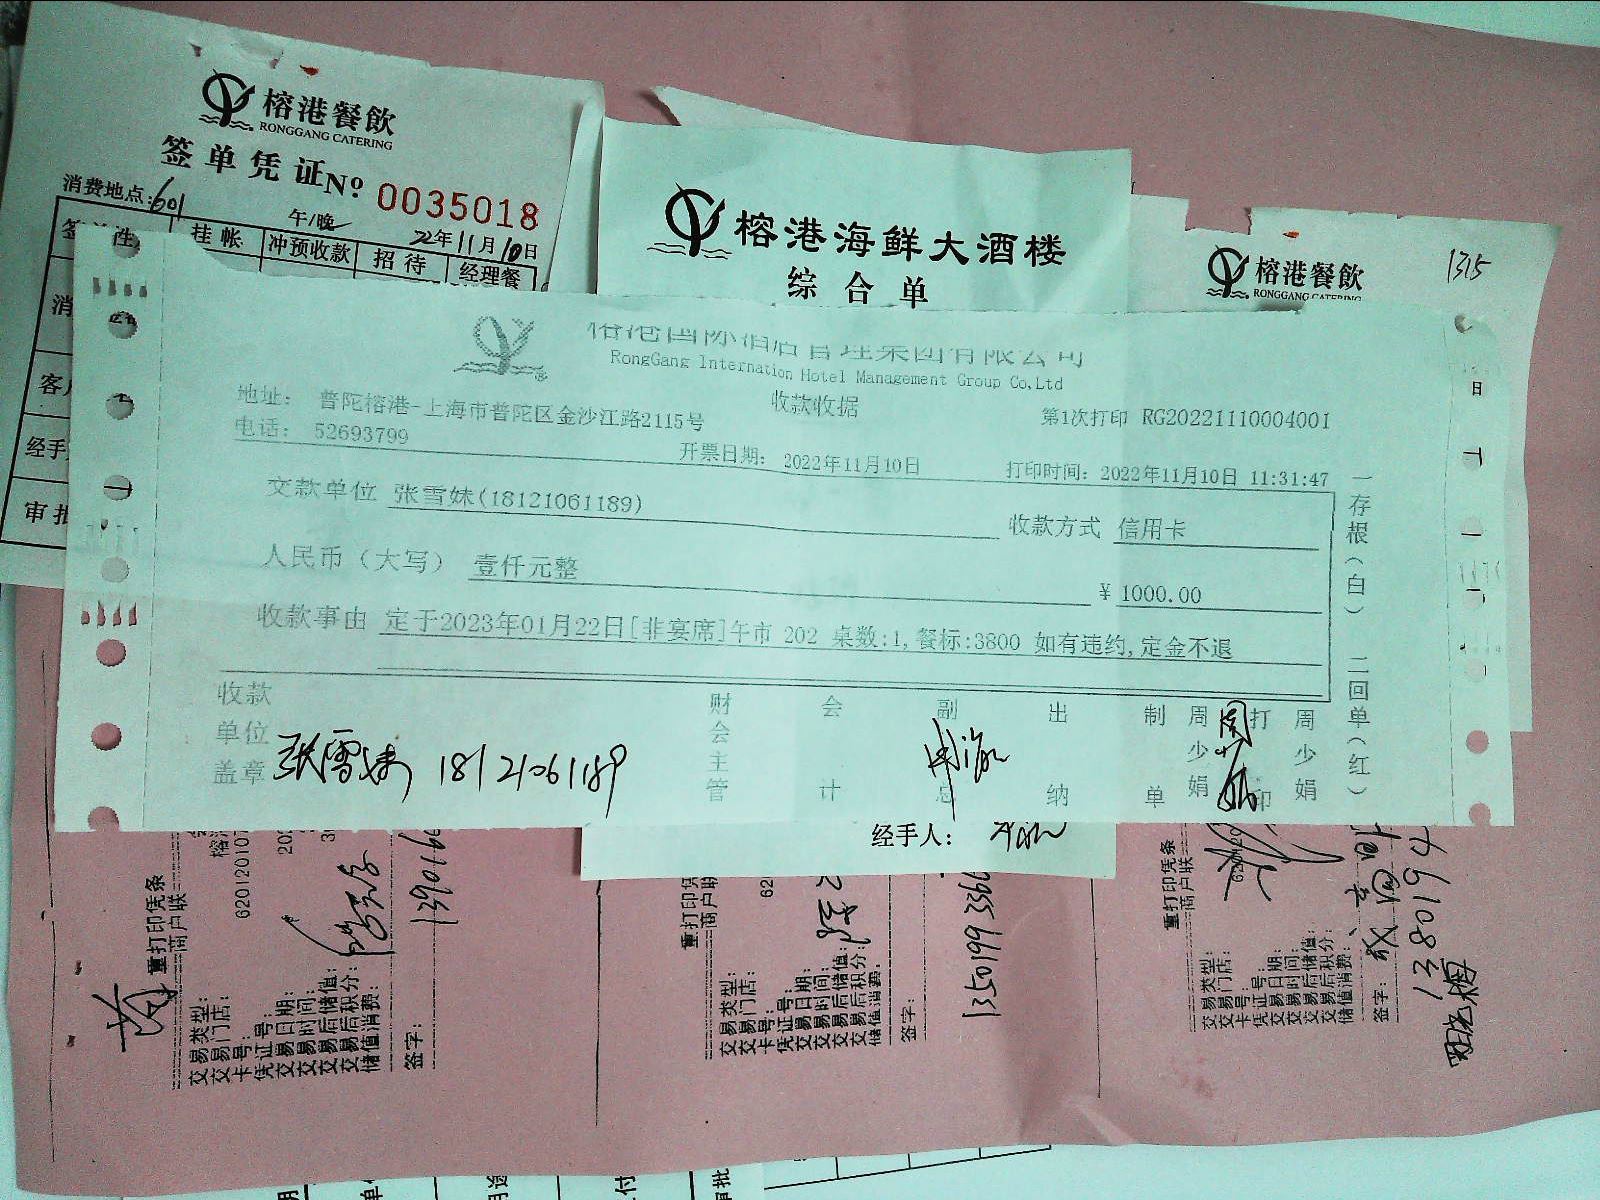 榕港餐飲
RONGGANG CATERING
签单凭证No: 0035018
消费地点:601
午/晚
22年11月10日
挂帐 冲预收款 招待 经理餐
消
客
经手
审批
榕港海鲜大酒楼
综合单
榕港餐飲
RONGGANG CATERING
1315
日
榕港国际酒店管理集团有限公司
RongGang International Hotel Management Group Co.Ltd
收款收据
地址: 普陀榕港-上海市普陀区金沙江路2115号
第1次打印 RG20221110004001
电话: 52693799
开票日期: 2022年11月10日
打印时间: 2022年11月10日 11:31:47
交款单位 张雪妹(18121061189)
收款方式 信用卡
人民币(大写) 壹仟元整
¥ 1000.00
收款事由 定于2023年01月22日[非宴席]午市 202 桌数:1,餐标:3800 如有违约,定金不退
一存根(白) 二回单(红)
收款单位盖章 张雪妹 18121061189
财会主管
会计
副总
出纳
制单 周少娟
打印 周少娟
经手人:
重打印凭条
商户联
交易类型:
交易门店:
卡号:
凭证号:
交易日期:
交易时间:
交易后储值:
交易后积分:
储值消费:
签字:
重打印凭条
商户联
交易类型:
交易门店:
卡号:
凭证号:
交易日期:
交易时间:
交易后储值:
交易后积分:
储值消费:
签字:
重打印凭条
商户联
交易类型:
交易门店:
卡号:
凭证号:
交易日期:
交易时间:
交易后储值:
交易后积分:
储值消费:
签字: